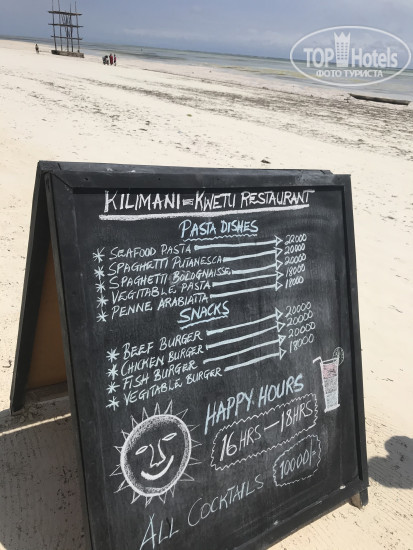 TOP Hotels
ФОТО ТУРИСТА
KILIMANI=KWETU RESTAURANT
PASTA DISHES
* SEAFOOD PASTA 22000
* SPAGHETTI PUTANESCA 20000
* SPAGHETTI BOLOGNAISSE 20000
* VEGITABLE PASTA 18000
* PENNE ARABIATTA 18000
SNACKS
* BEEF BURGER 20000
* CHICKEN BURGER 20000
* FISH BURGER 20000
* VEGITABLE BURGER 18000
HAPPY HOURS
16HRS-18HRS
ALL COCKTAILS 10000/=